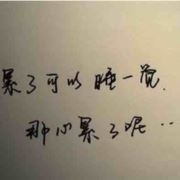 累了可以睡一觉.
那心累了呢··